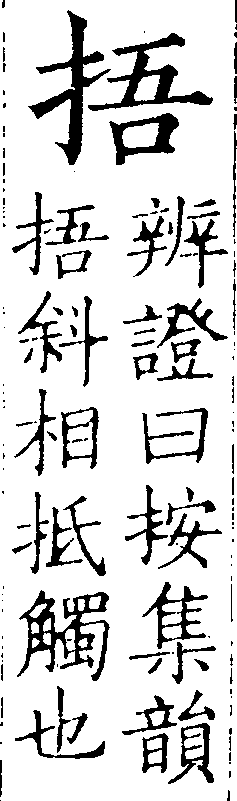 捂
辨證曰按集韻
捂斜相抵觸也